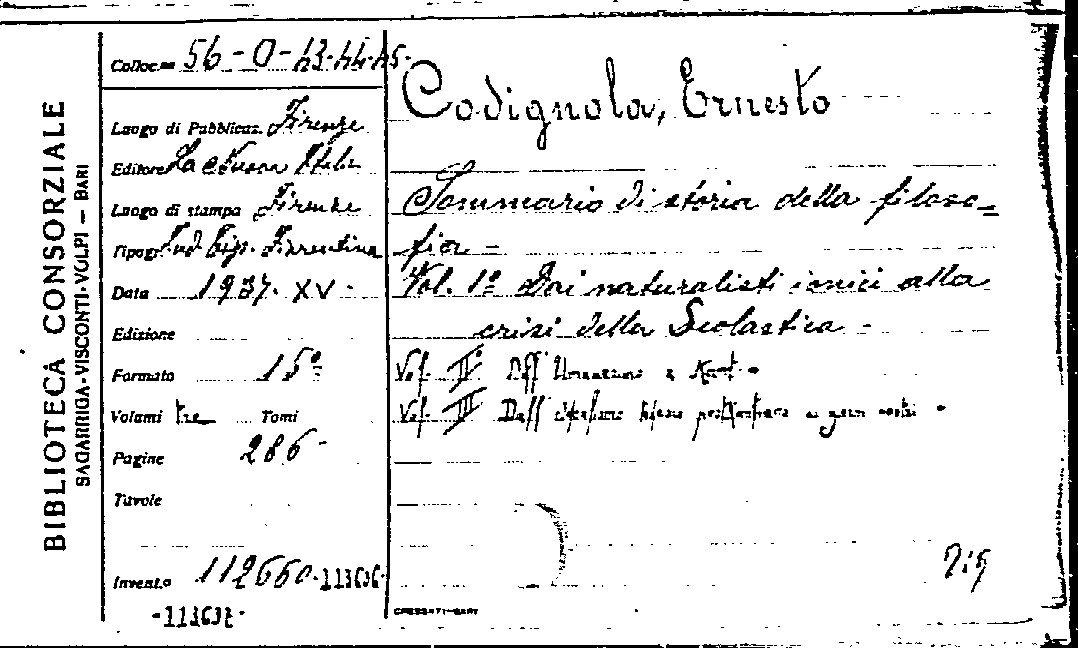 BIBLIOTECA CONSORZIALE
SAGARRIGA-VISCONTI-VOLPI — BARI
Colloc.ne 56-O-43-44-45-
Luogo di Pubblicaz. Firenze
Editore La Nuova Italia
Luogo di stampa Firenze
Tipogr. Ind. Tip. Fiorentina
Data 1937. XV.
Edizione
Formato 15º
Volumi tre Tomi
Pagine 286
Tavole
Invent.o 112660
Codignola, Ernesto
Sommario di storia della filoso=
fia =
Vol. 1º Dai naturalisti ionici alla
crisi della Scolastica -
Vol. II º Dall'Umanesimo a Kant
Vol. III Dall' ai giorni nostri
CRESSATI-BARI